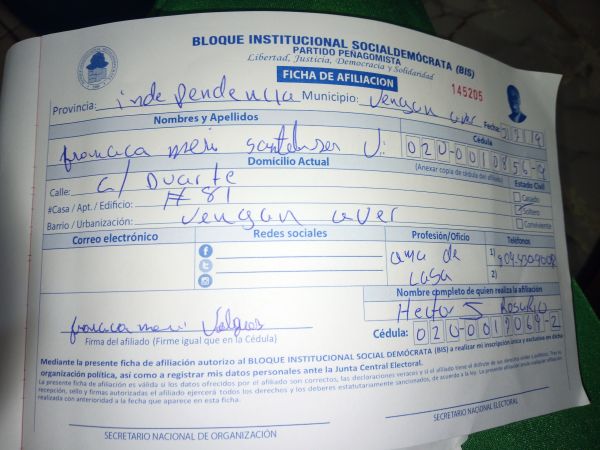 BLOQUE INSTITUCIONAL SOCIALDEMÓCRATA (BIS)
PARTIDO PEÑAGOMISTA
Libertad, Justicia, Democracia y Solidaridad
FICHA DE AFILIACION
145205
Provincia: independencia Municipio: vengan aver Fecha:
Nombres y Apellidos
Cédula
francica meri V. 020-0010856-9
(Anexar copia de cédula del afiliado)
Domicilio Actual
Estado Civil
Calle: c/ Duarte
Casado
#Casa / Apt. / Edificio: # 81
Soltero
Barrio / Urbanización: vengan aver
Conviviente
Correo electrónico
Redes sociales
Profesión/Oficio
Teléfonos
ama de casa
1)
2)
Nombre completo de quien realiza la afiliación
Hector S Rosario
francica meri
Firma del afiliado (Firme igual que en la Cédula)
Cédula: 020-0019069-2
Mediante la presente ficha de afiliación autorizo al BLOQUE INSTITUCIONAL SOCIAL DEMÓCRATA (BIS) a realizar mi inscripción única y exclusiva en dicha
organización política, así como a registrar mis datos personales ante la Junta Central Electoral.
La presente ficha de afiliación es válida si los datos ofrecidos por el afiliado son correctos, las declaraciones veraces y si el afiliado tiene el disfrute de sus derechos civiles y políticos. Tras su
recepción, sello y firmas autorizadas el afiliado ejercerá todos los derechos y los deberes estatutariamente sancionados, de acuerdo a la ley. La presente afiliación anula cualquier afiliación
realizada con anterioridad a la fecha que aparece en esta ficha.
SECRETARIO NACIONAL DE ORGANIZACIÓN
SECRETARIO NACIONAL ELECTORAL